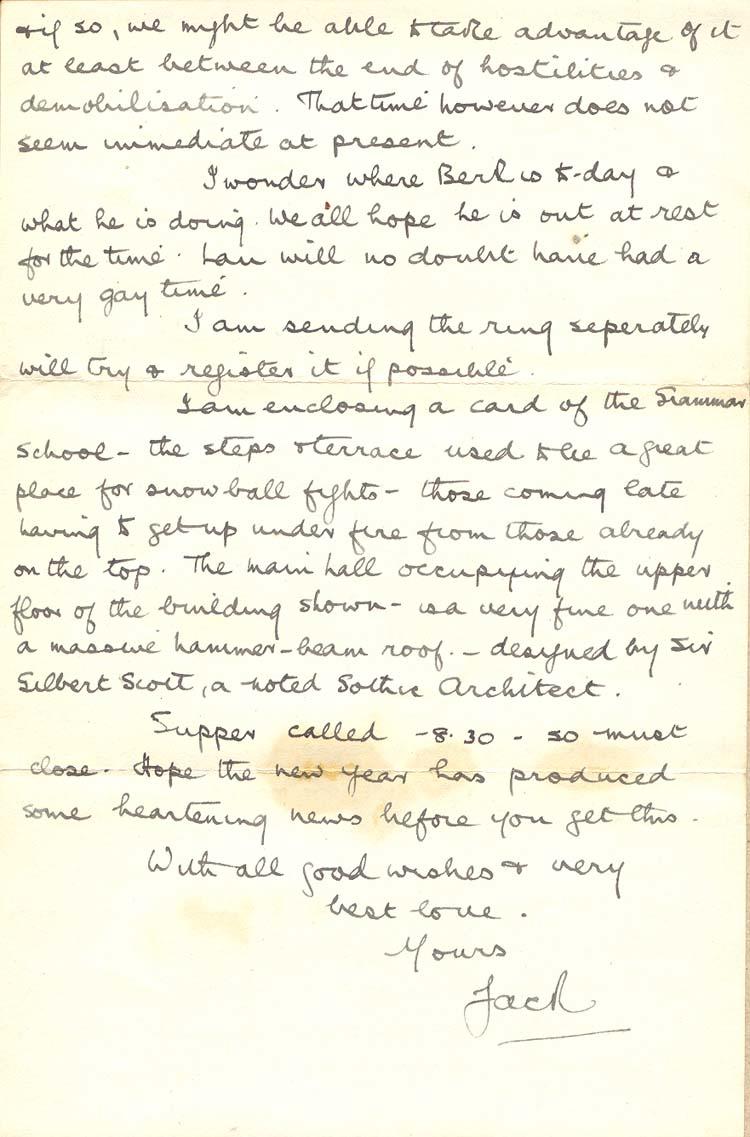 & if so, we might be able to take advantage of it
at least between the end of hostilities &
demobilisation. That time however does not
seem immediate at present.
I wonder where Berk is to-day &
what he is doing. We all hope he is out at rest
for the time. Lau will no doubt have had a
very gay time.
I am sending the ring seperately
will try & register it if possible.
I am enclosing a card of the Grammar
School - the steps & terrace used to be a great
place for snowball fights - those coming late
having to get up under fire from those already
on the top. The main hall occupying the upper
floor of the building shown - is a very fine one with
a massive hammer-beam roof. - designed by Sir
Gilbert Scott, a noted Gothic Architect.
Supper called - 8.30 - so must
close. Hope the new year has produced
some heartening news before you get this.
With all good wishes & very
best love.
Yours
Jack